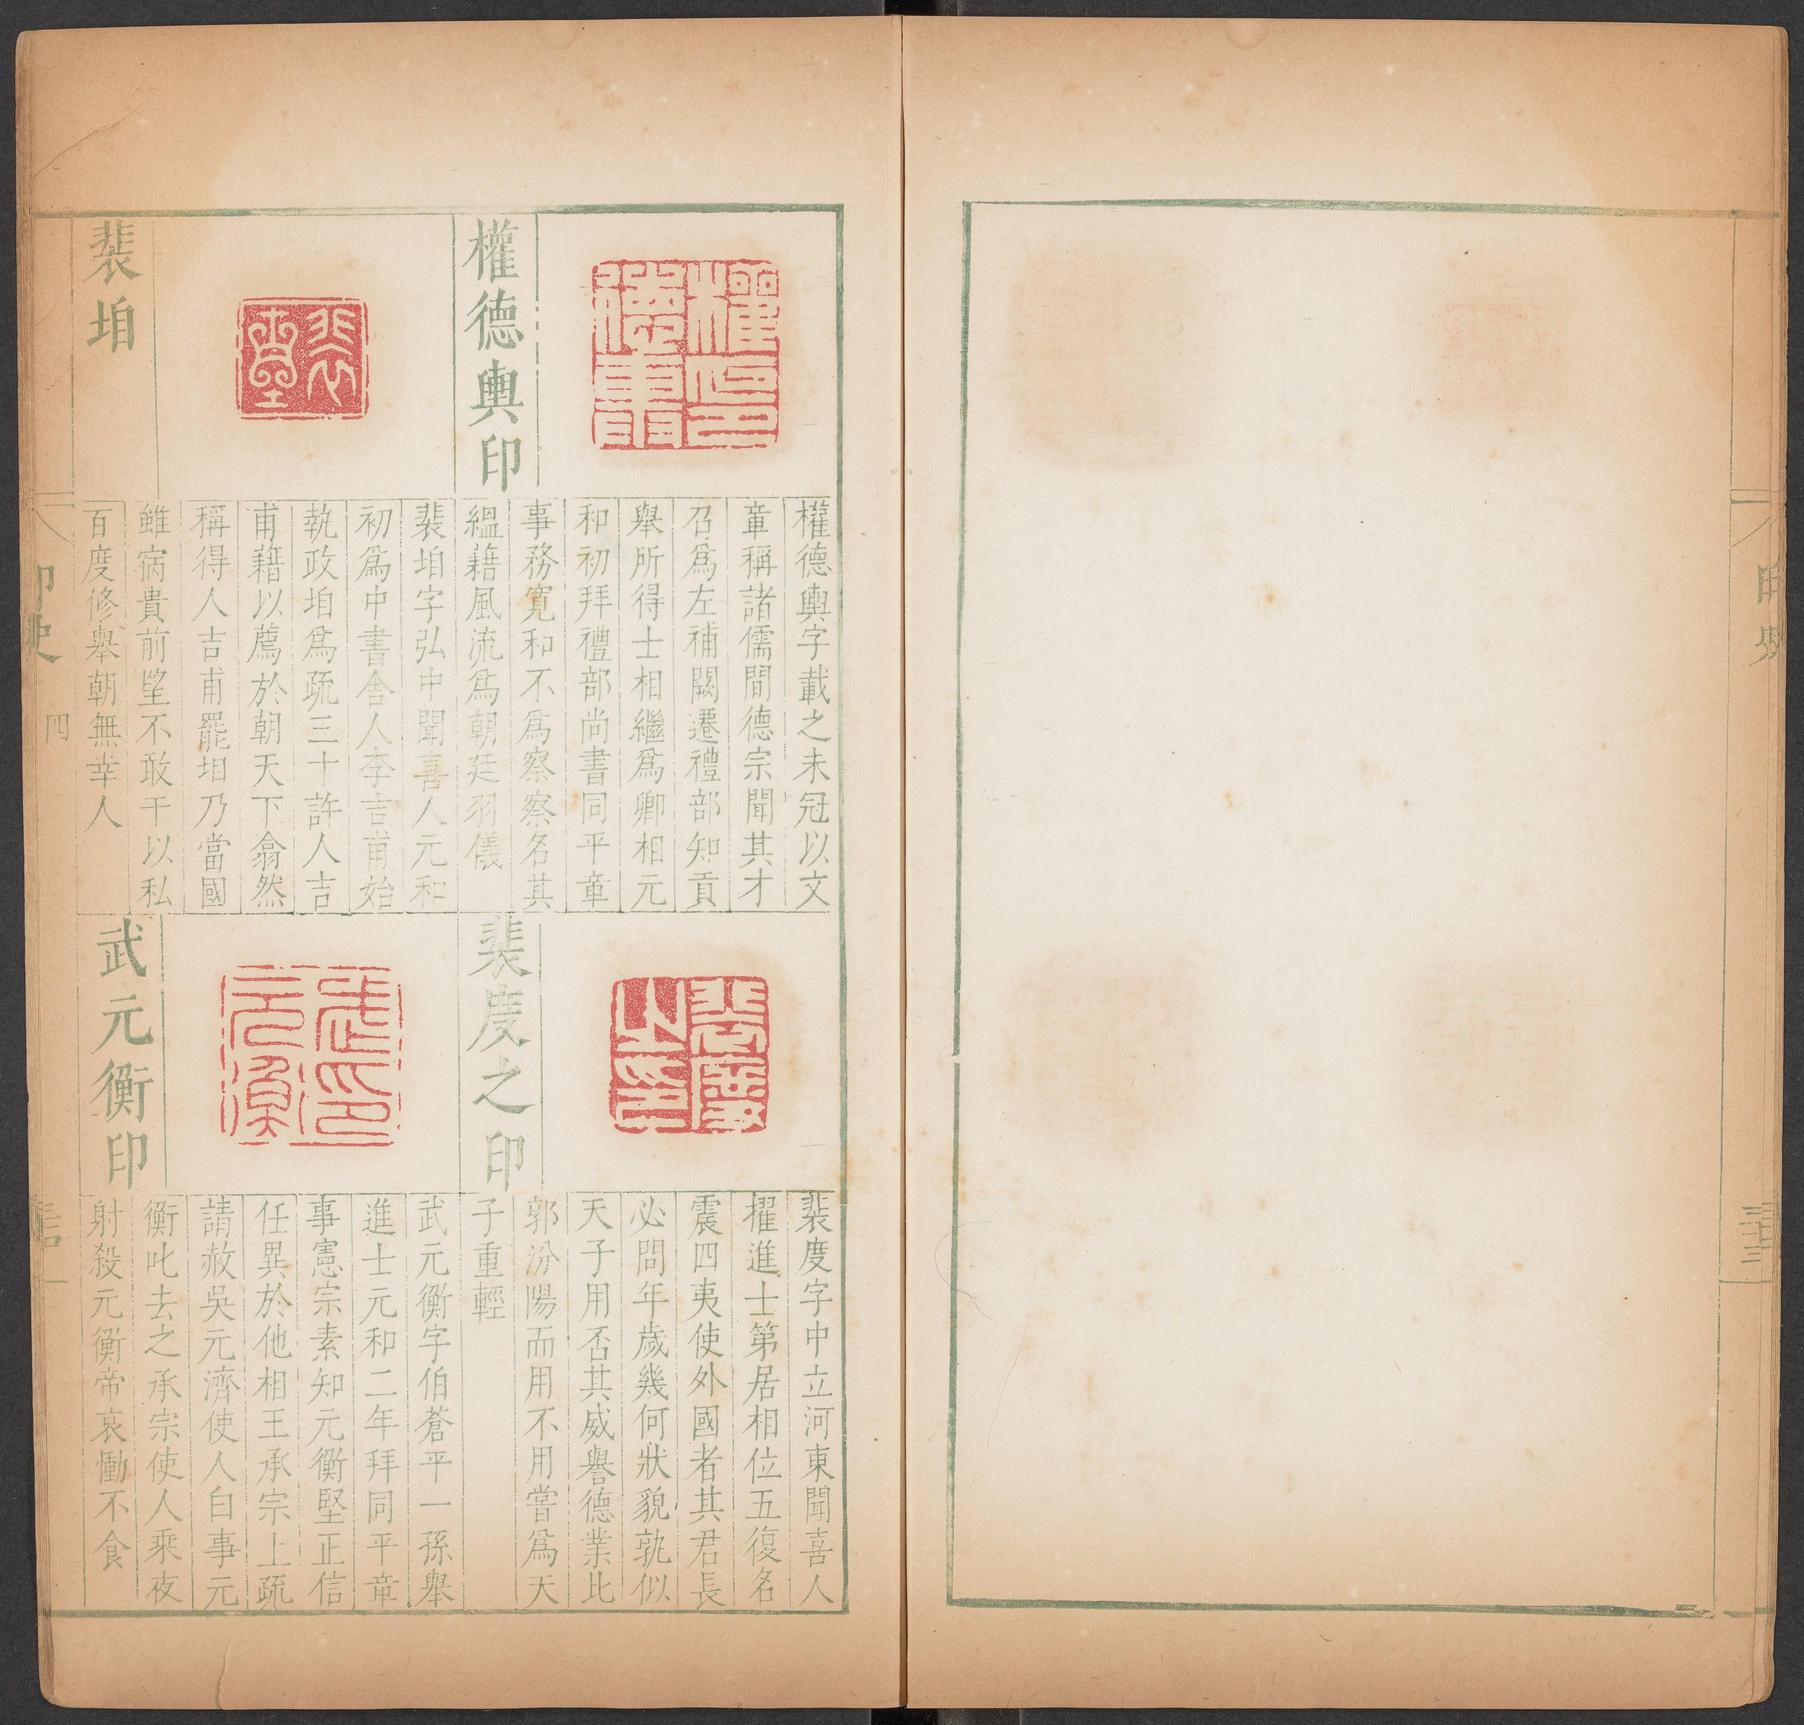 權德輿印
權德輿字載之未冠以文
章稱諸儒間德宗聞其才
召爲左補闕遷禮部知貢
舉所得士相繼爲卿相元
和初拜禮部尚書同平章
事務寬和不爲察察名其
縕藉風流爲朝廷羽儀
裴垍
裴垍字弘中聞喜人元和
初爲中書舍人李吉甫始
執政垍爲疏三十許人吉
甫藉以薦於朝天下翕然
稱得人吉甫罷垍乃當國
雖宿貴前望不敢干以私
百度修舉朝無幸人
裴度之印
裴度字中立河東聞喜人
擢進士第居相位五復名
震四夷使外國者其君長
必問年歲幾何狀貌孰似
天子用否其威譽德業比
郭汾陽而用不用嘗爲天
子重輕
武元衡印
武元衡字伯蒼平一孫舉
進士元和二年拜同平章
事憲宗素知元衡堅正信
任異於他相王承宗上疏
請赦吳元濟使人白事元
衡叱去之承宗使人乘夜
射殺元衡帝哀慟不食
印史
四